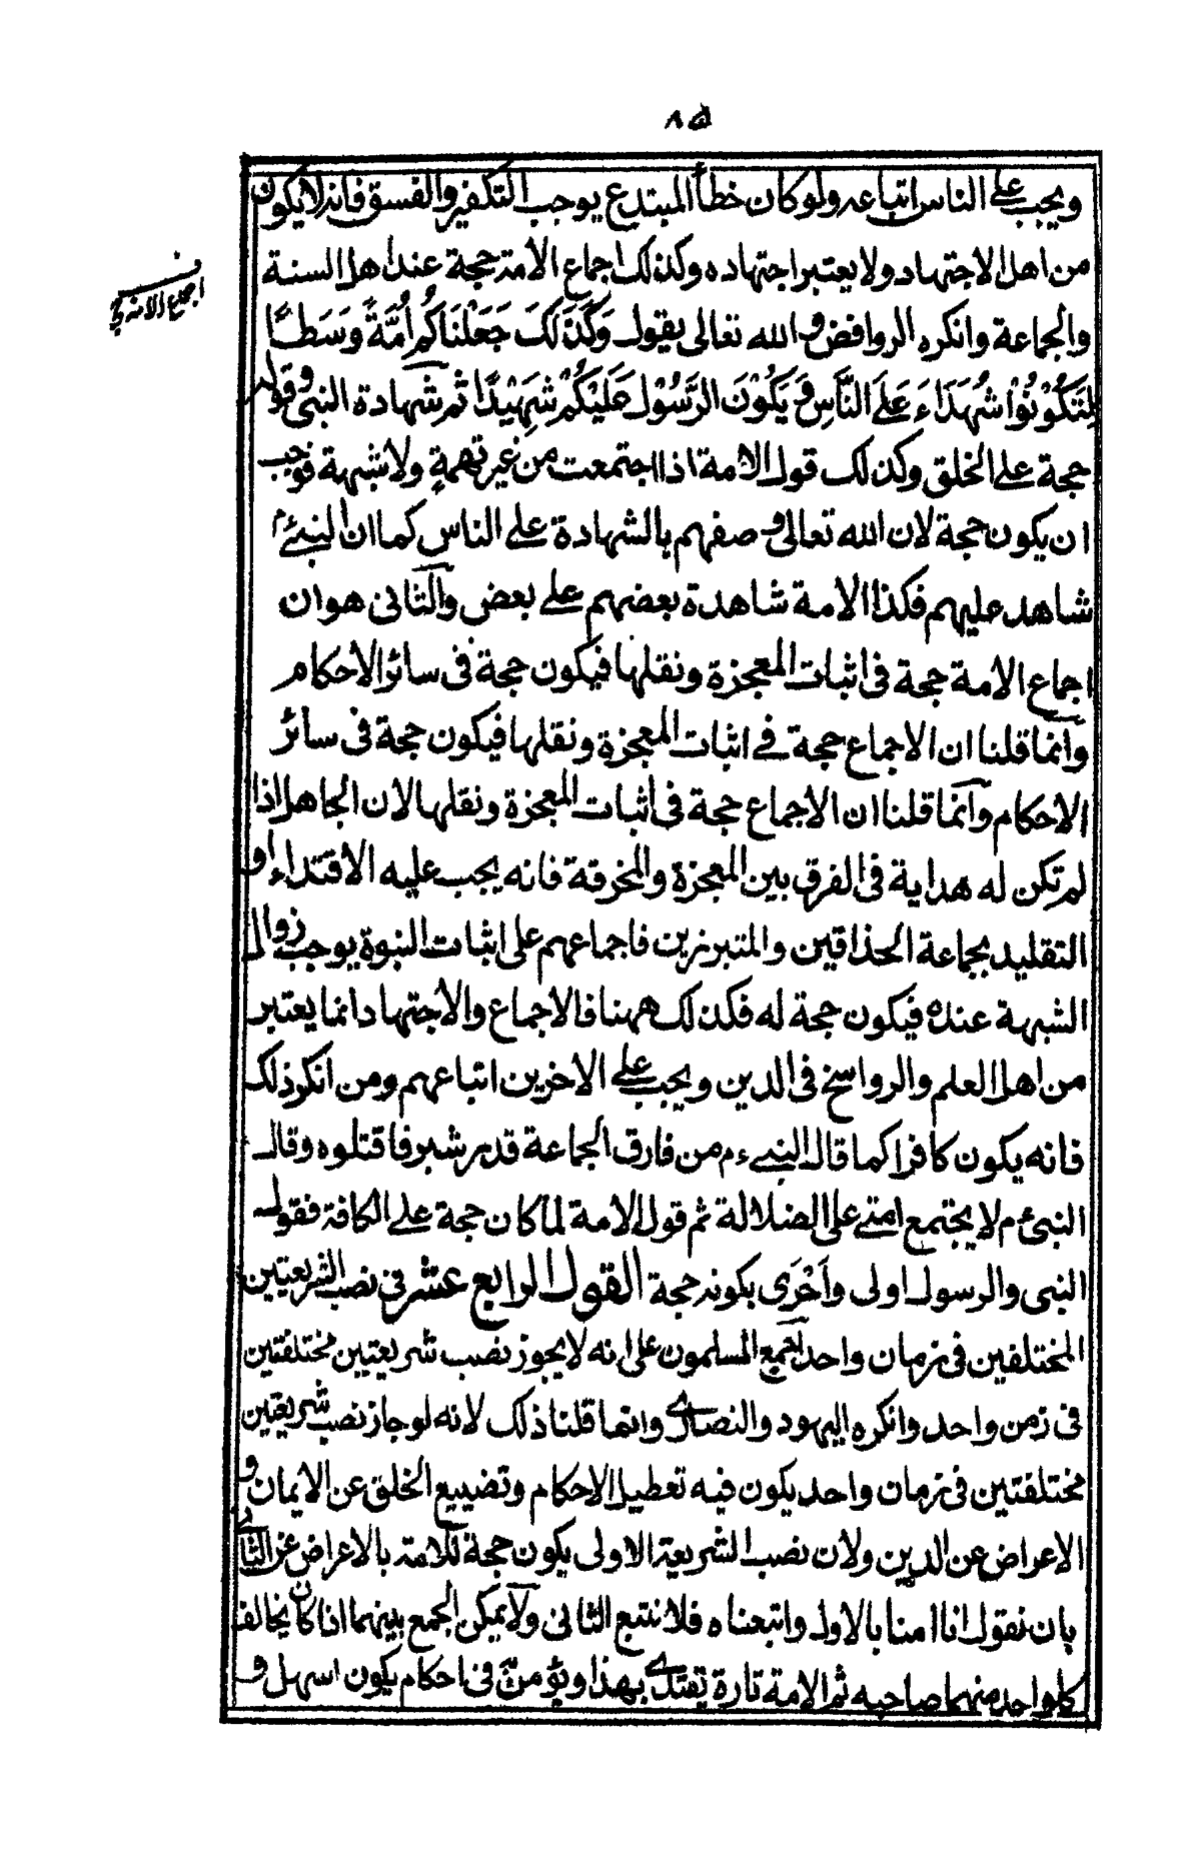 ٨٥
ويجب على الناس اتباعه ولو كان خطأ المبتدع يوجب التكفير والفسق فانه لا يكون
من اهل الاجتهاد ولا يعتبر اجتهاده وكذلك اجماع الامة حجة عند اهل السنة
ف اجماع الامة حجة
والجماعة وانكره الروافض والله تعالى يقول وَكَذٰلِكَ جَعَلْنَاكُمْ اُمَّةً وَسَطًا
لِتَكُوْنُوْا شُهَدَاءَ عَلَى النَّاسِ وَ يَكُوْنَ الرَّسُوْلُ عَلَيْكُمْ شَهِيْدًا ثم شهادة النبى وقوله
حجة على الخلق وكذلك قول الامة اذا اجتمعت من غير تهمةٍ ولا شبهة فوجب
ان يكون حجة لان الله تعالى وصفهم بالشهادة على الناس كما ان النبى ء م
شاهد عليهم فكذا الامة شاهدة بعضهم على بعض والثانى هو ان
اجماع الامة حجة فى اثبات المعجزة ونقلها فيكون حجة فى سائر الاحكام
وانما قلنا ان الاجماع حجة فى اثبات المعجزة ونقلها فيكون حجة فى سائر
الاحكام وانما قلنا ان الاجماع حجة فى اثبات المعجزة ونقلها لان الجاهل اذا
لم تكن له هداية فى الفرق بين المعجزة والمخرقة فانه يجب عليه الاقتداء او
التقليد بجماعة الحذاقين والمتبرزين فاجماعهم على اثبات النبوة يوجب زوال
الشبهة عنده فيكون حجة له فكذلك ههنا فالاجماع والاجتهاد انما يعتبر
من اهل العلم والرواسخ فى الدين ويجب على الاخرين اتباعهم ومن انكر ذلك
فانه يكون كافرا كما قال النبى ءم من فارق الجماعة قدر شبر فاقتلوه وقال
النبى ء م لا يجتمع امتى على الضلالة ثم قول الامة لما كان حجة على الكافة فقول
النبى والرسول اولى وَاَحْرٰى بكونه حجة القول الرابع عشر فى نصب الشريعتين
المختلفين فى زمان واحد اجمع المسلمون على انه لا يجوز نصب شريعتين مختلفتين
فى زمن واحد وانكره اليهود والنصارى وانما قلنا ذلك لانه لو جاز نصب شريعتين
مختلفتين فى زمان واحد يكون فيه تعطيل الاحكام وتضييع الخلق عن الايمان و
الاعراض عن الدين ولان نصب الشريعة الاولى يكون حجة للامة بالاعراض عن الثانى
بان نقول انا امنا بالاول واتبعناه فلا نتبع الثانى ولا يمكن الجمع بينهما اذا كان يخالف
كل واحد منهما صاحبه ثم الامة تارة يقتدى بهذا ويؤمن فى احكام يكون اسهل و